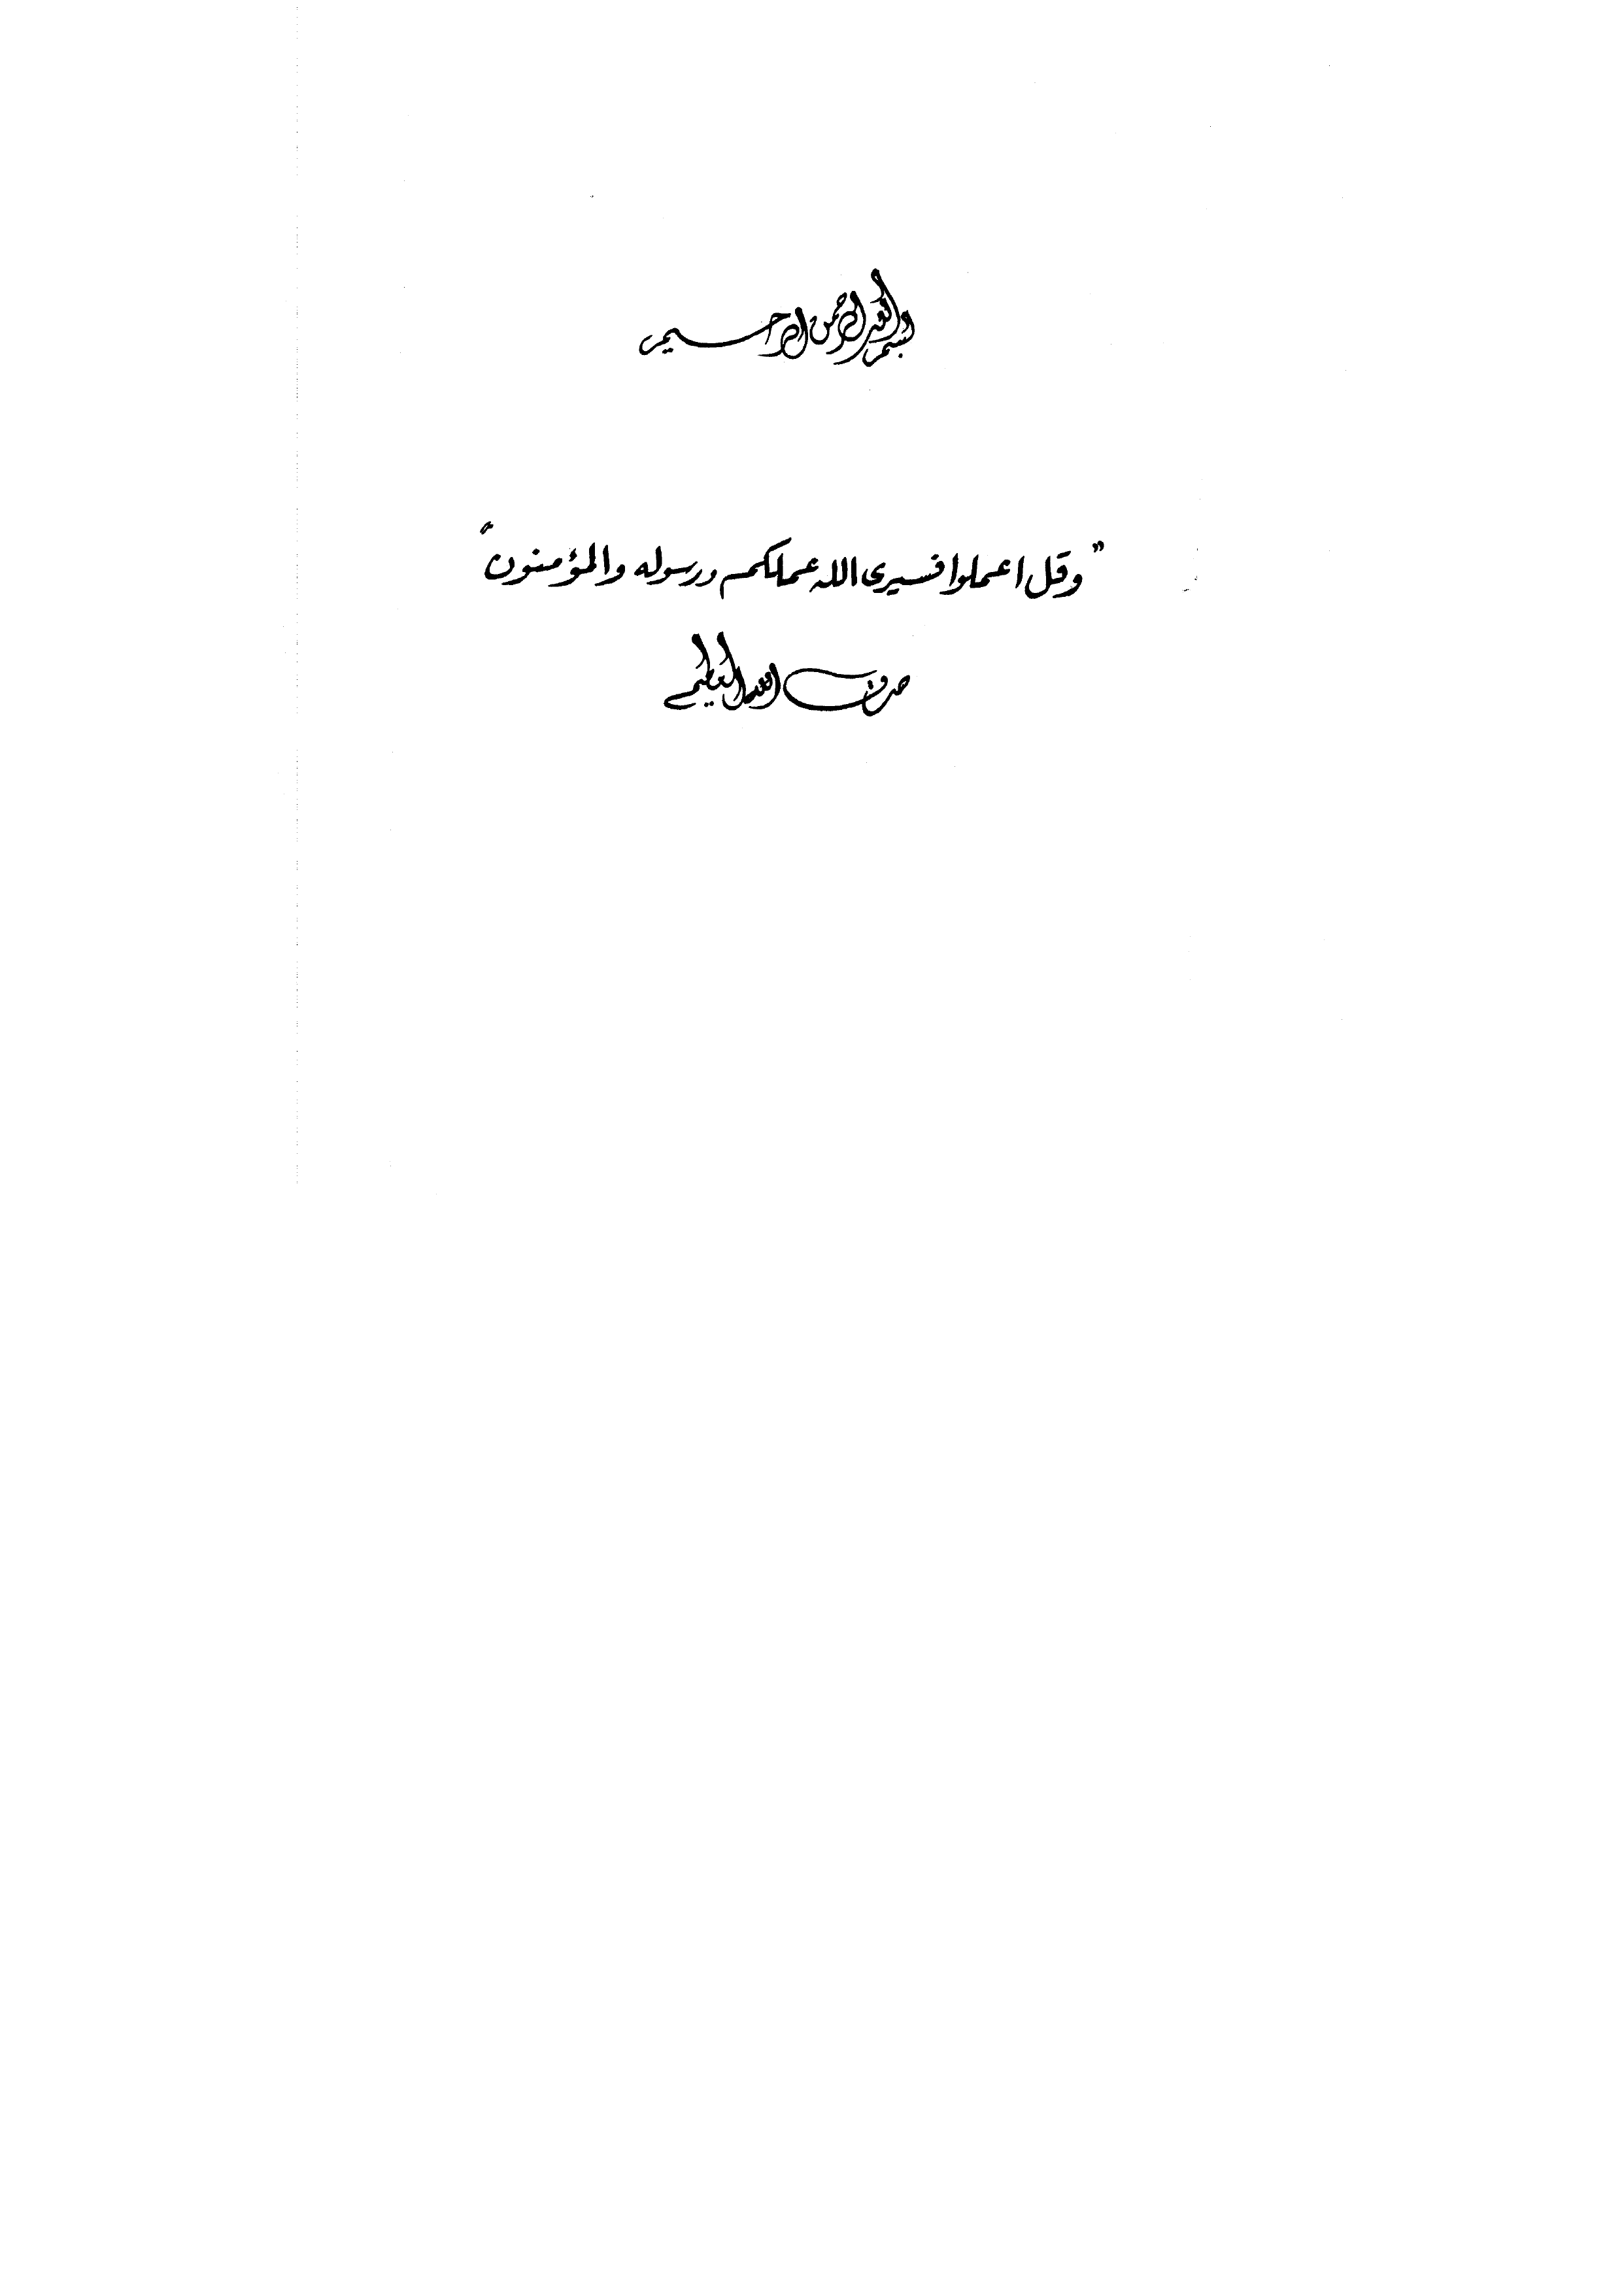 بسم الله الرحمن الرحيم
"وقل اعملوا فسيرى الله عملكم ورسوله والمؤمنون"
صدق الله العظيم